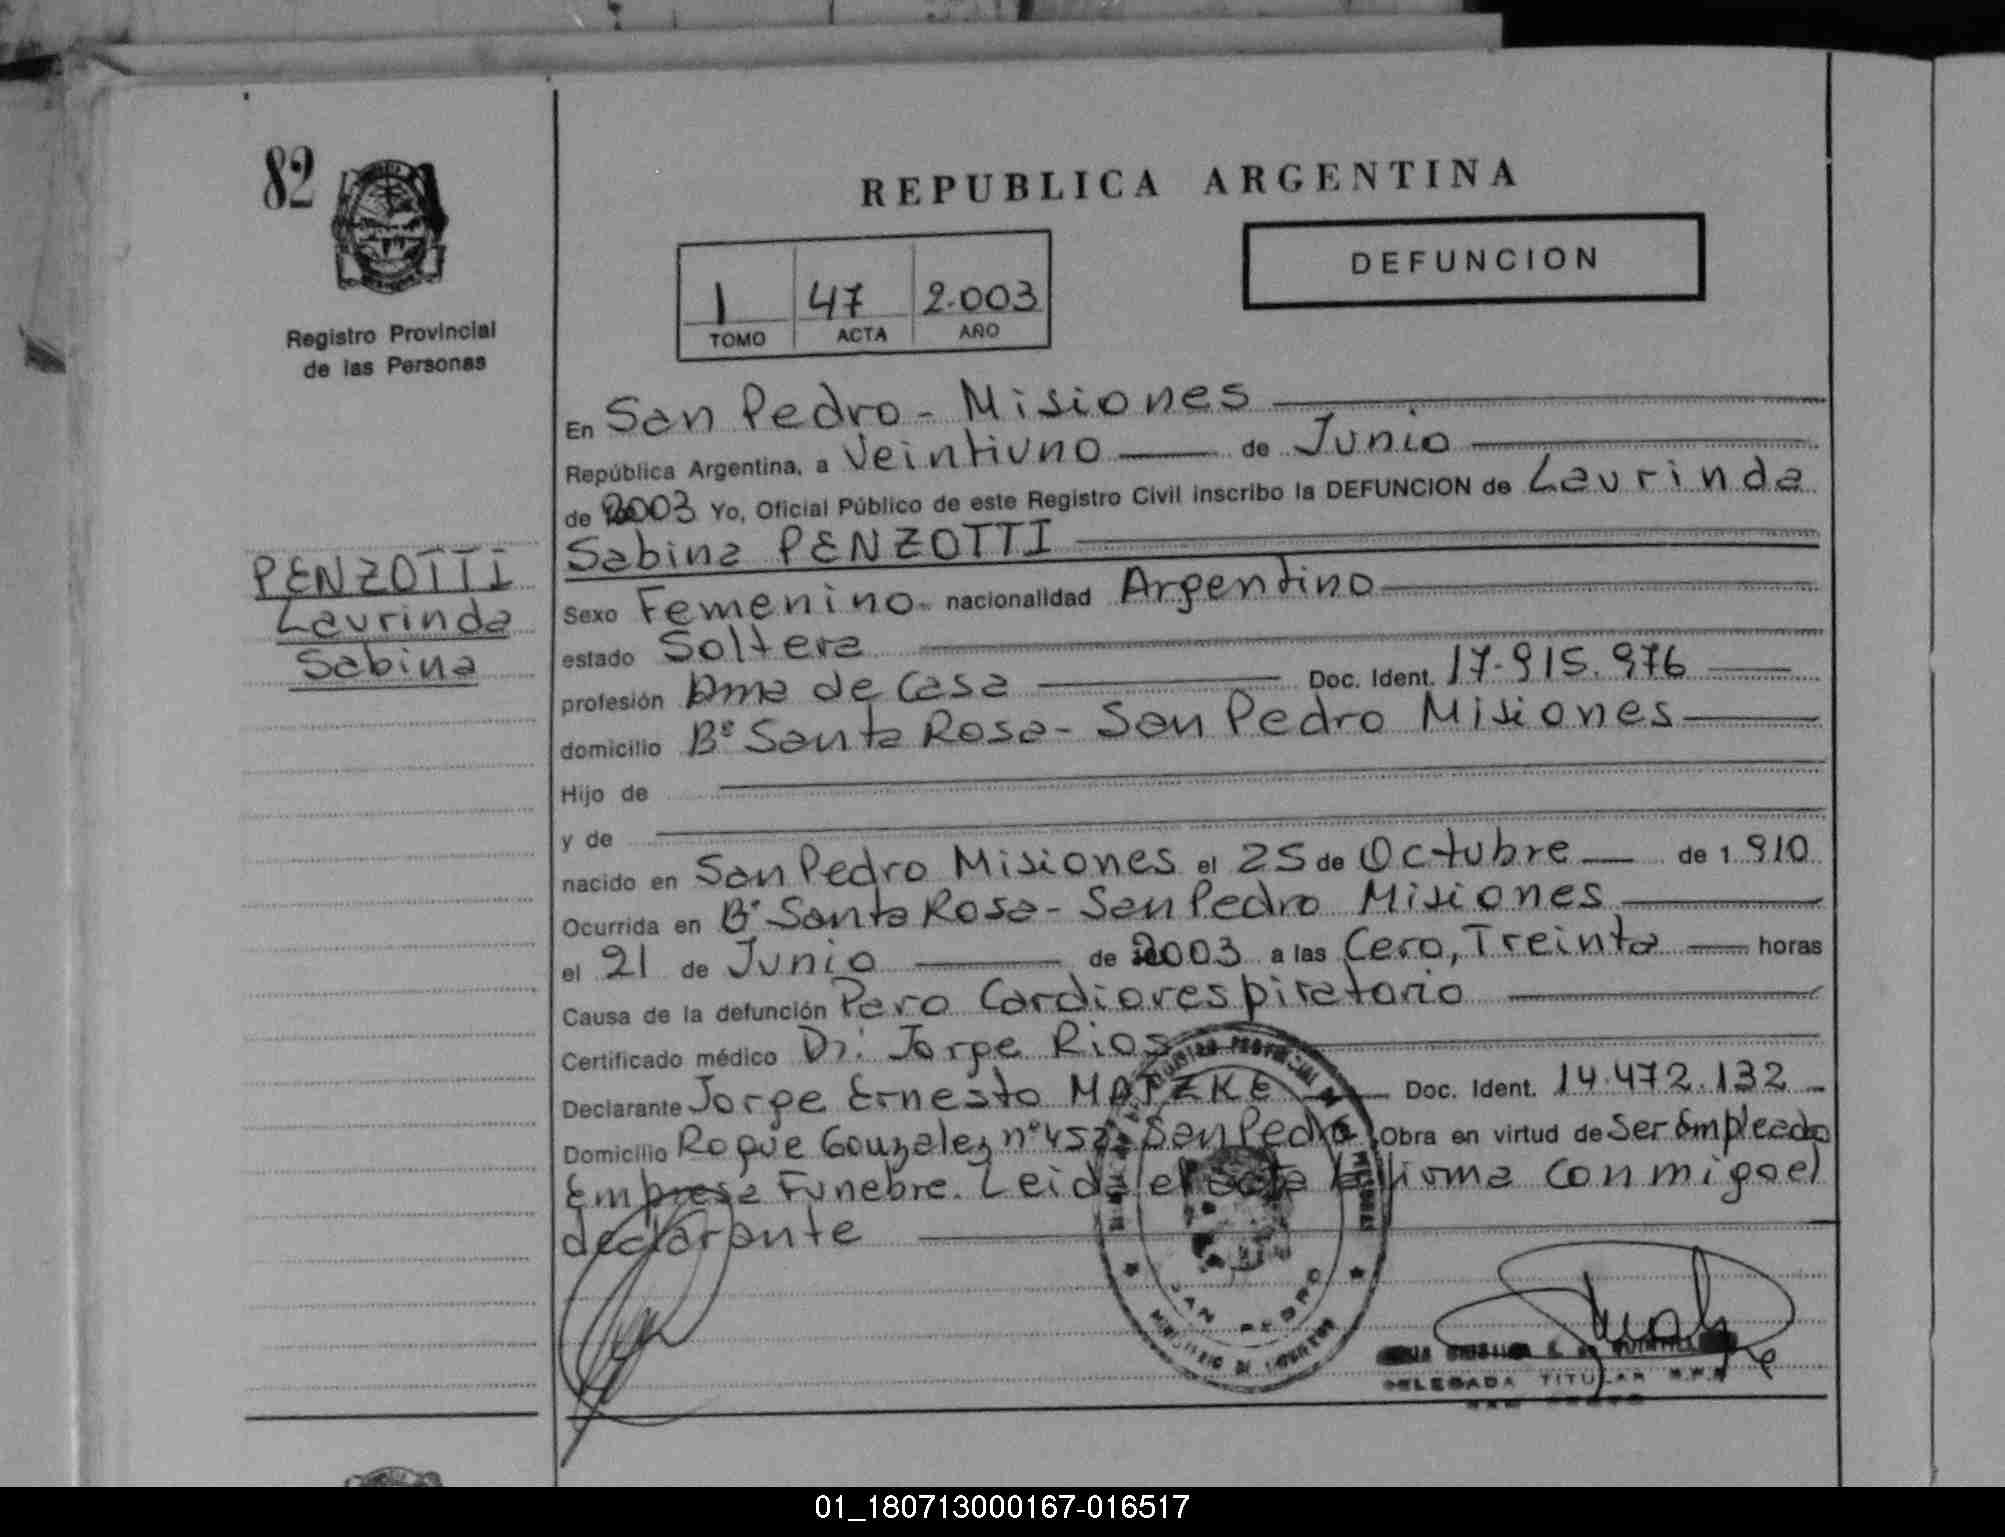 82
REPUBLICA ARGENTINA
DEFUNCION
1 47 2.003
TOMO ACTA AÑO
Registro Provincial
de las Personas
En San Pedro - Misiones
República Argentina, a Veintiuno de Junio
de 2003 Yo, Oficial Público de este Registro Civil inscribo la DEFUNCION de Laurinda
Sabina PENZOTTI
PENZOTTI
Laurinda
Sabina
Sexo Femenino nacionalidad Argentino
estado Soltera
profesión Ama de Casa Doc. Ident. 17.915.976
domicilio Bº Santa Rosa - San Pedro Misiones
Hijo de
y de
nacido en San Pedro Misiones el 25 de Octubre de 1.910
Ocurrida en Bº Santa Rosa - San Pedro Misiones
el 21 de Junio de 2003 a las Cero, Treinta horas
Causa de la defunción Paro Cardiorespiratorio
Certificado médico Dr. Jorge Rios
Declarante Jorge Ernesto MATZKE Doc. Ident. 14.472.132
Domicilio Roque Gonzalez nº 452 San Pedro Obra en virtud de Ser Empleado
Empresa Funebre. Leida el acta la firma conmigo el
declarante
SAN PEDRO
MINISTERIO DE GOBIERNO
DELEGADA TITULAR
01_180713000167-016517